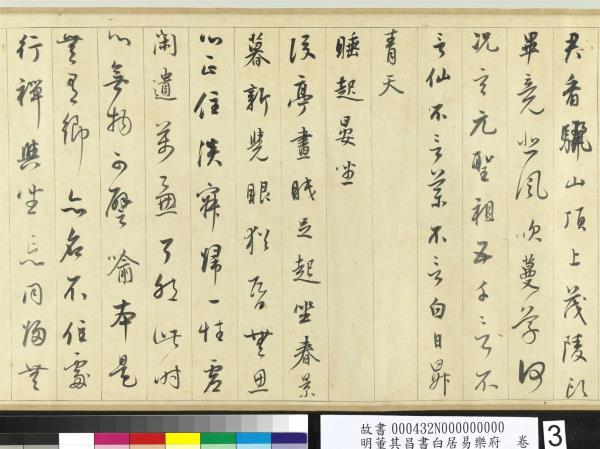 君看驪山頂上茂陵頭
畢竟悲風吹蔓草何
況玄元聖祖五千言不
言仙不言藥不言白日昇
青天
睡起晏坐
後亭晝眠足起坐春景
暮新覺眼猶昏無思
心正住淡寂歸一性虛
閑遺萬慮了然此時
心無物可譬喻本是
無有鄉亦名不住處
行禪與坐忘同歸無
故書000432N000000000
明董其昌書白居易樂府 卷
3